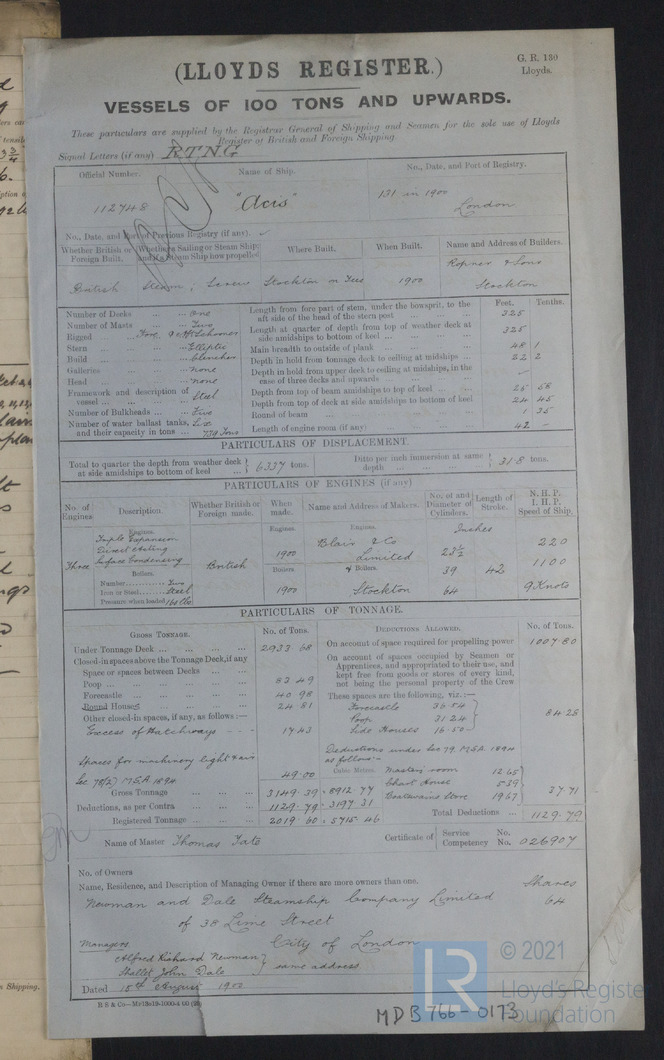 (LLOYDS REGISTER.)
G. R. 130
Lloyds.
VESSELS OF 100 TONS AND UPWARDS.
These particulars are supplied by the Registrar General of Shipping and Seamen for the sole use of Lloyds
Register of British and Foreign Shipping.
Signal Letters (if any) RTNG
Official Number. Name of Ship. No., Date, and Port of Registry.
112748 "Acis" 131 in 1900
London
No., Date, and Port of Previous Registry (if any).
Whether British or Foreign Built. Whether a Sailing or Steam Ship and if a Steam Ship how propelled Where Built. When Built. Name and Address of Builders.
British Steam; Screw Stockton on Tees 1900 Ropner & Sons
Stockton
Feet. Tenths.
Number of Decks ... ... One
Number of Masts ... ... Two
Rigged Fore & Aft Schooner
Stern ... ... Elliptic
Build ... ... Clencher
Galleries ... ... None
Head ... ... None
Framework and description of vessel ... ... Steel
Number of Bulkheads ... ... Five
Number of water ballast tanks, and their capacity in tons ... Six 779 Tons
Length from fore part of stem, under the bowsprit, to the aft side of the head of the stern post ... 325
Length at quarter of depth from top of weather deck at side amidships to bottom of keel ... 325
Main breadth to outside of plank ... 48 1
Depth in hold from tonnage deck to ceiling at midships ... 22 2
Depth in hold from upper deck to ceiling at midships, in the case of three decks and upwards ...
Depth from top of beam amidships to top of keel ... 25 58
Depth from top of deck at side amidships to bottom of keel 24 45
Round of beam ... 1 35
Length of engine room (if any) ... 42 -
PARTICULARS OF DISPLACEMENT.
Total to quarter the depth from weather deck at side amidships to bottom of keel ... 6337 tons.
Ditto per inch immersion at same depth ... 31.8 tons.
PARTICULARS OF ENGINES (if any)
No. of Engines Description. Whether British or Foreign made. When made. Name and Address of Makers. No. of and Diameter of Cylinders. Length of Stroke. N. H. P. I. H. P. Speed of Ship.
Engines. Engines. Engines. Inches
Triple Expansion
Direct Acting
Surface Condensing
Three British 1900 Blair & Co Limited 23½ 220
Boilers. Boilers & Boilers. 39 42 1100
Number Two
Iron or Steel Steel 1900 Stockton 64 9 Knots
Pressure when loaded 160 lbs
PARTICULARS OF TONNAGE.
GROSS TONNAGE. No. of Tons. DEDUCTIONS ALLOWED. No. of Tons.
Under Tonnage Deck ... 2933 68
Closed-in spaces above the Tonnage Deck, if any
Space or spaces between Decks ...
Poop ... 83 49
Forecastle ... 40 98
Round Houses 24 81
Other closed-in spaces, if any, as follows:—
Excess of Hatchways 17 43
Spaces for machinery light & air
Sec 78(2) M.S.A. 1894 49.00
Gross Tonnage ... 3149.39 8912.77
Deductions, as per Contra ... 1129.79 3197 31
Registered Tonnage ... 2019.60 5715.46
On account of space required for propelling power 1007.80
On account of spaces occupied by Seamen or Apprentices, and appropriated to their use, and kept free from goods or stores of every kind, not being the personal property of the Crew
These spaces are the following, viz.:—
Forecastle 36.54
Poop 31.24
Side Houses 16.50
84 28
Deductions under Sec 79 M.S.A. 1894
as follows:-
Cubic Metres. Masters room 12.65
Chart House 5.39
Boatswains Store 19.67
37 71
Total Deductions ... 1129.79
Name of Master Thomas Tate
Certificate of Service Competency No. No. 026907
No. of Owners
Name, Residence, and Description of Managing Owner if there are more owners than one. Shares
Newman and Dale Steamship Company Limited 64
of 38 Lime Street
City of London
Managers
Alfred Richard Newman
Shallet John Dale
same address
Dated 15th August 1900
MDB766-0173
© 2021
LR
Lloyd's Register
Foundation